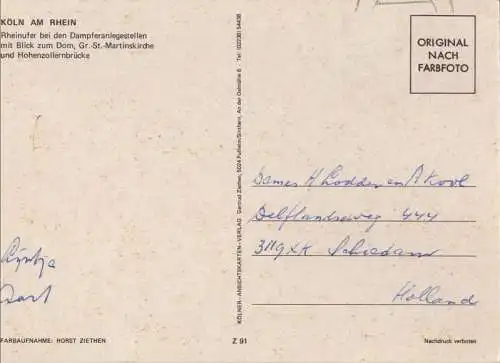 KÖLN AM RHEIN
Rheinufer bei den Dampferanlegestellen
mit Blick zum Dom, Gr.-St.-Martinskirche
und Hohenzollernbrücke
ORIGINAL
NACH
FARBFOTO
KÖLNER-ANSICHTSKARTEN-VERLAG Gertrud Ziethen, 5024 Pulheim/Sinthern, An der Ostmühle 6 · Tel.: (02238) 54438
Dames H Lodder en A Kool
Delflandseweg 444
3119XK Schiedam
Holland
FARBAUFNAHME: HORST ZIETHEN
Z 91
Nachdruck verboten